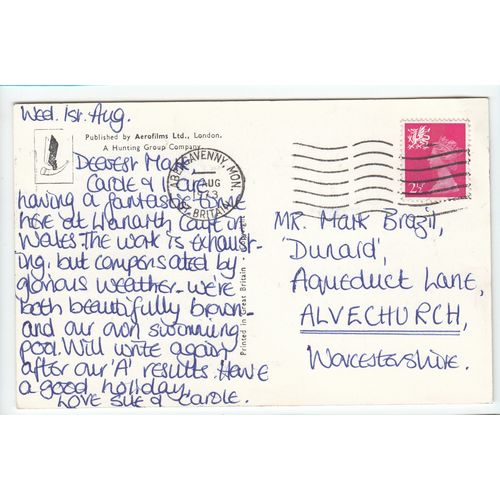 Wed. 1st. Aug.
Published by Aerofilms Ltd., London.
A Hunting Group Company
Deerest Mark,
Carole & I are
having a fantastic time
here at Llanarth Court in
Wales. The work is exhaust-
ing, but compensated by
glorious weather - we're
both beautifully brown -
and our own swimming
pool. Will write again
after our 'A' results. Have
a good holiday,
Love Sue & Carole.
Printed in Great Britain - Copyright
ABERGAVENNY, MON.
AUG
1973
GT. BRITAIN
2½P
Mr. Mark Brazil,
'Dunard',
Aqueduct Lane,
ALVECHURCH,
Worcestershire.